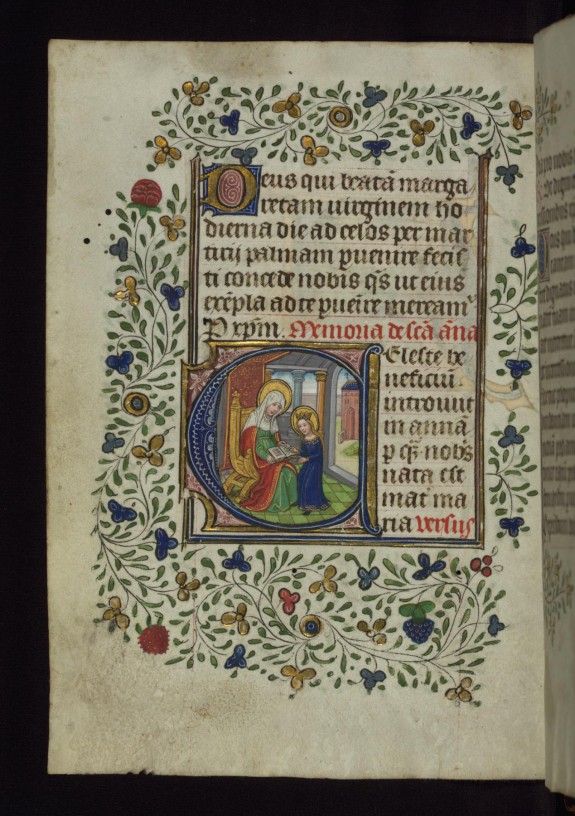 Deus qui beatā marga
retam uirginem ho
dierna die ad celos per mar
tirij palmam puenire fecis
ti concede nobis qs ut eius
exēpla ad te puēire meream
P xpm. Memoria de scā āna
Celeste be
neficiū
introiuit
in annā
p quā nobis
nata est
mat̄ ma
ria versus